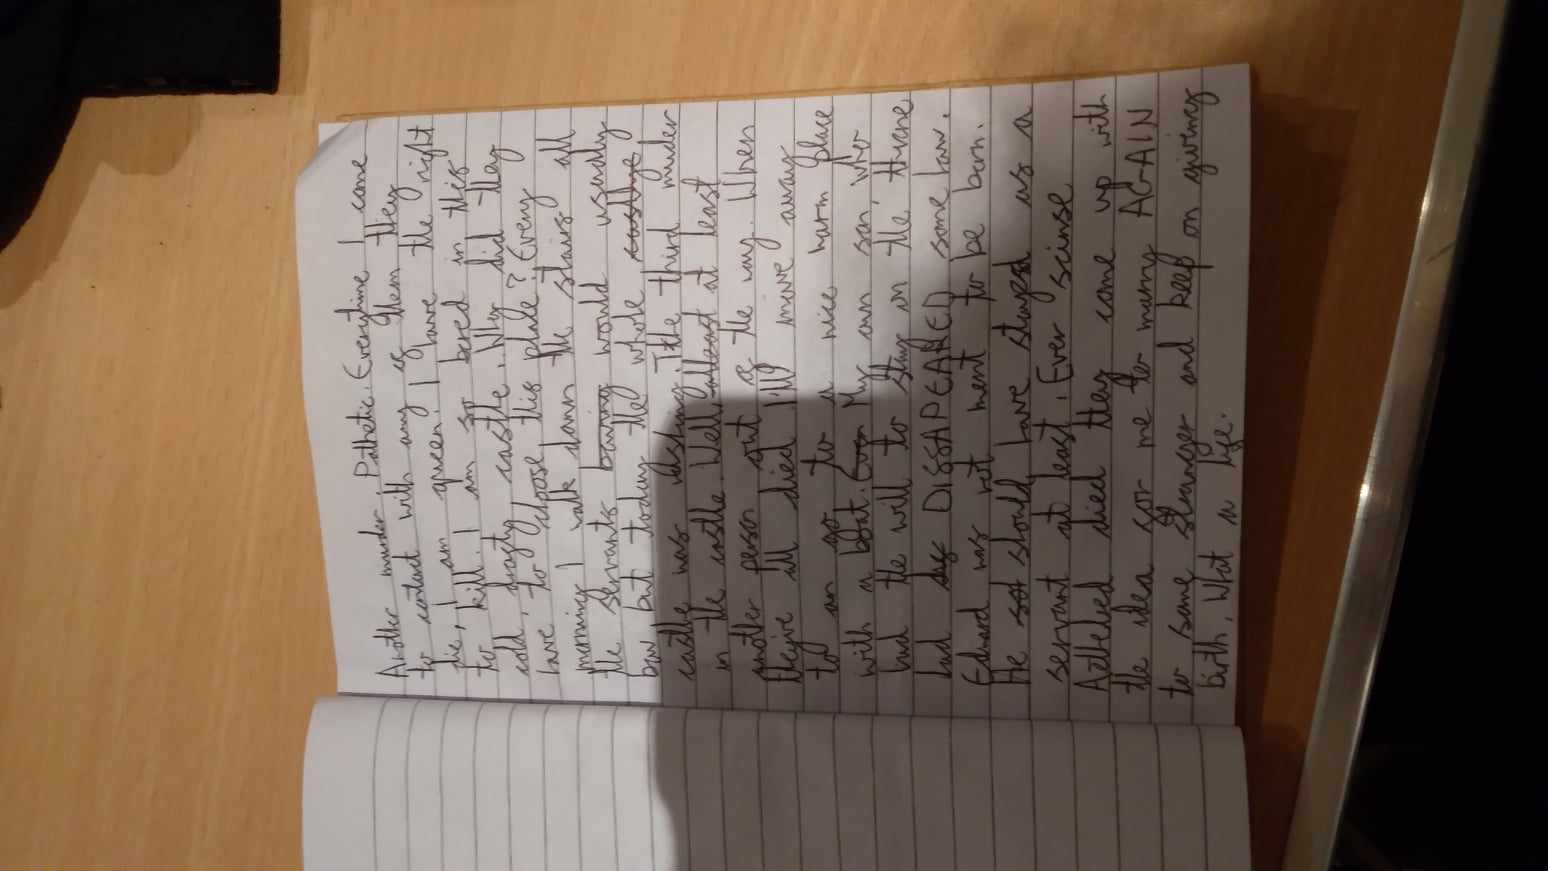 Another murder. Pathetic. Everytime I come
to contact with any of them they
die, I am queen! I have the right
to kill. I am so bored in this
cold, drafty castle. Why did they
have to choose this place? Every
morning I walk down the stairs all
the servants bowing would usually
bow but today the whole castlye
castle was
in the castle. Well, atleast at least
another person out of the way. When
they're all died I'll move away
to an go to a nice warm place
with a boat. Even My own son, who
had the will to stay on the throne
had DISSAPEARED some how.
Edward was not ment to be born.
He should have stayed as a
servant at least. Ever scinse
Athelred died they come up with
the idea for me to marry AGAIN
to some stranger and keep on giving
birth. What a life.